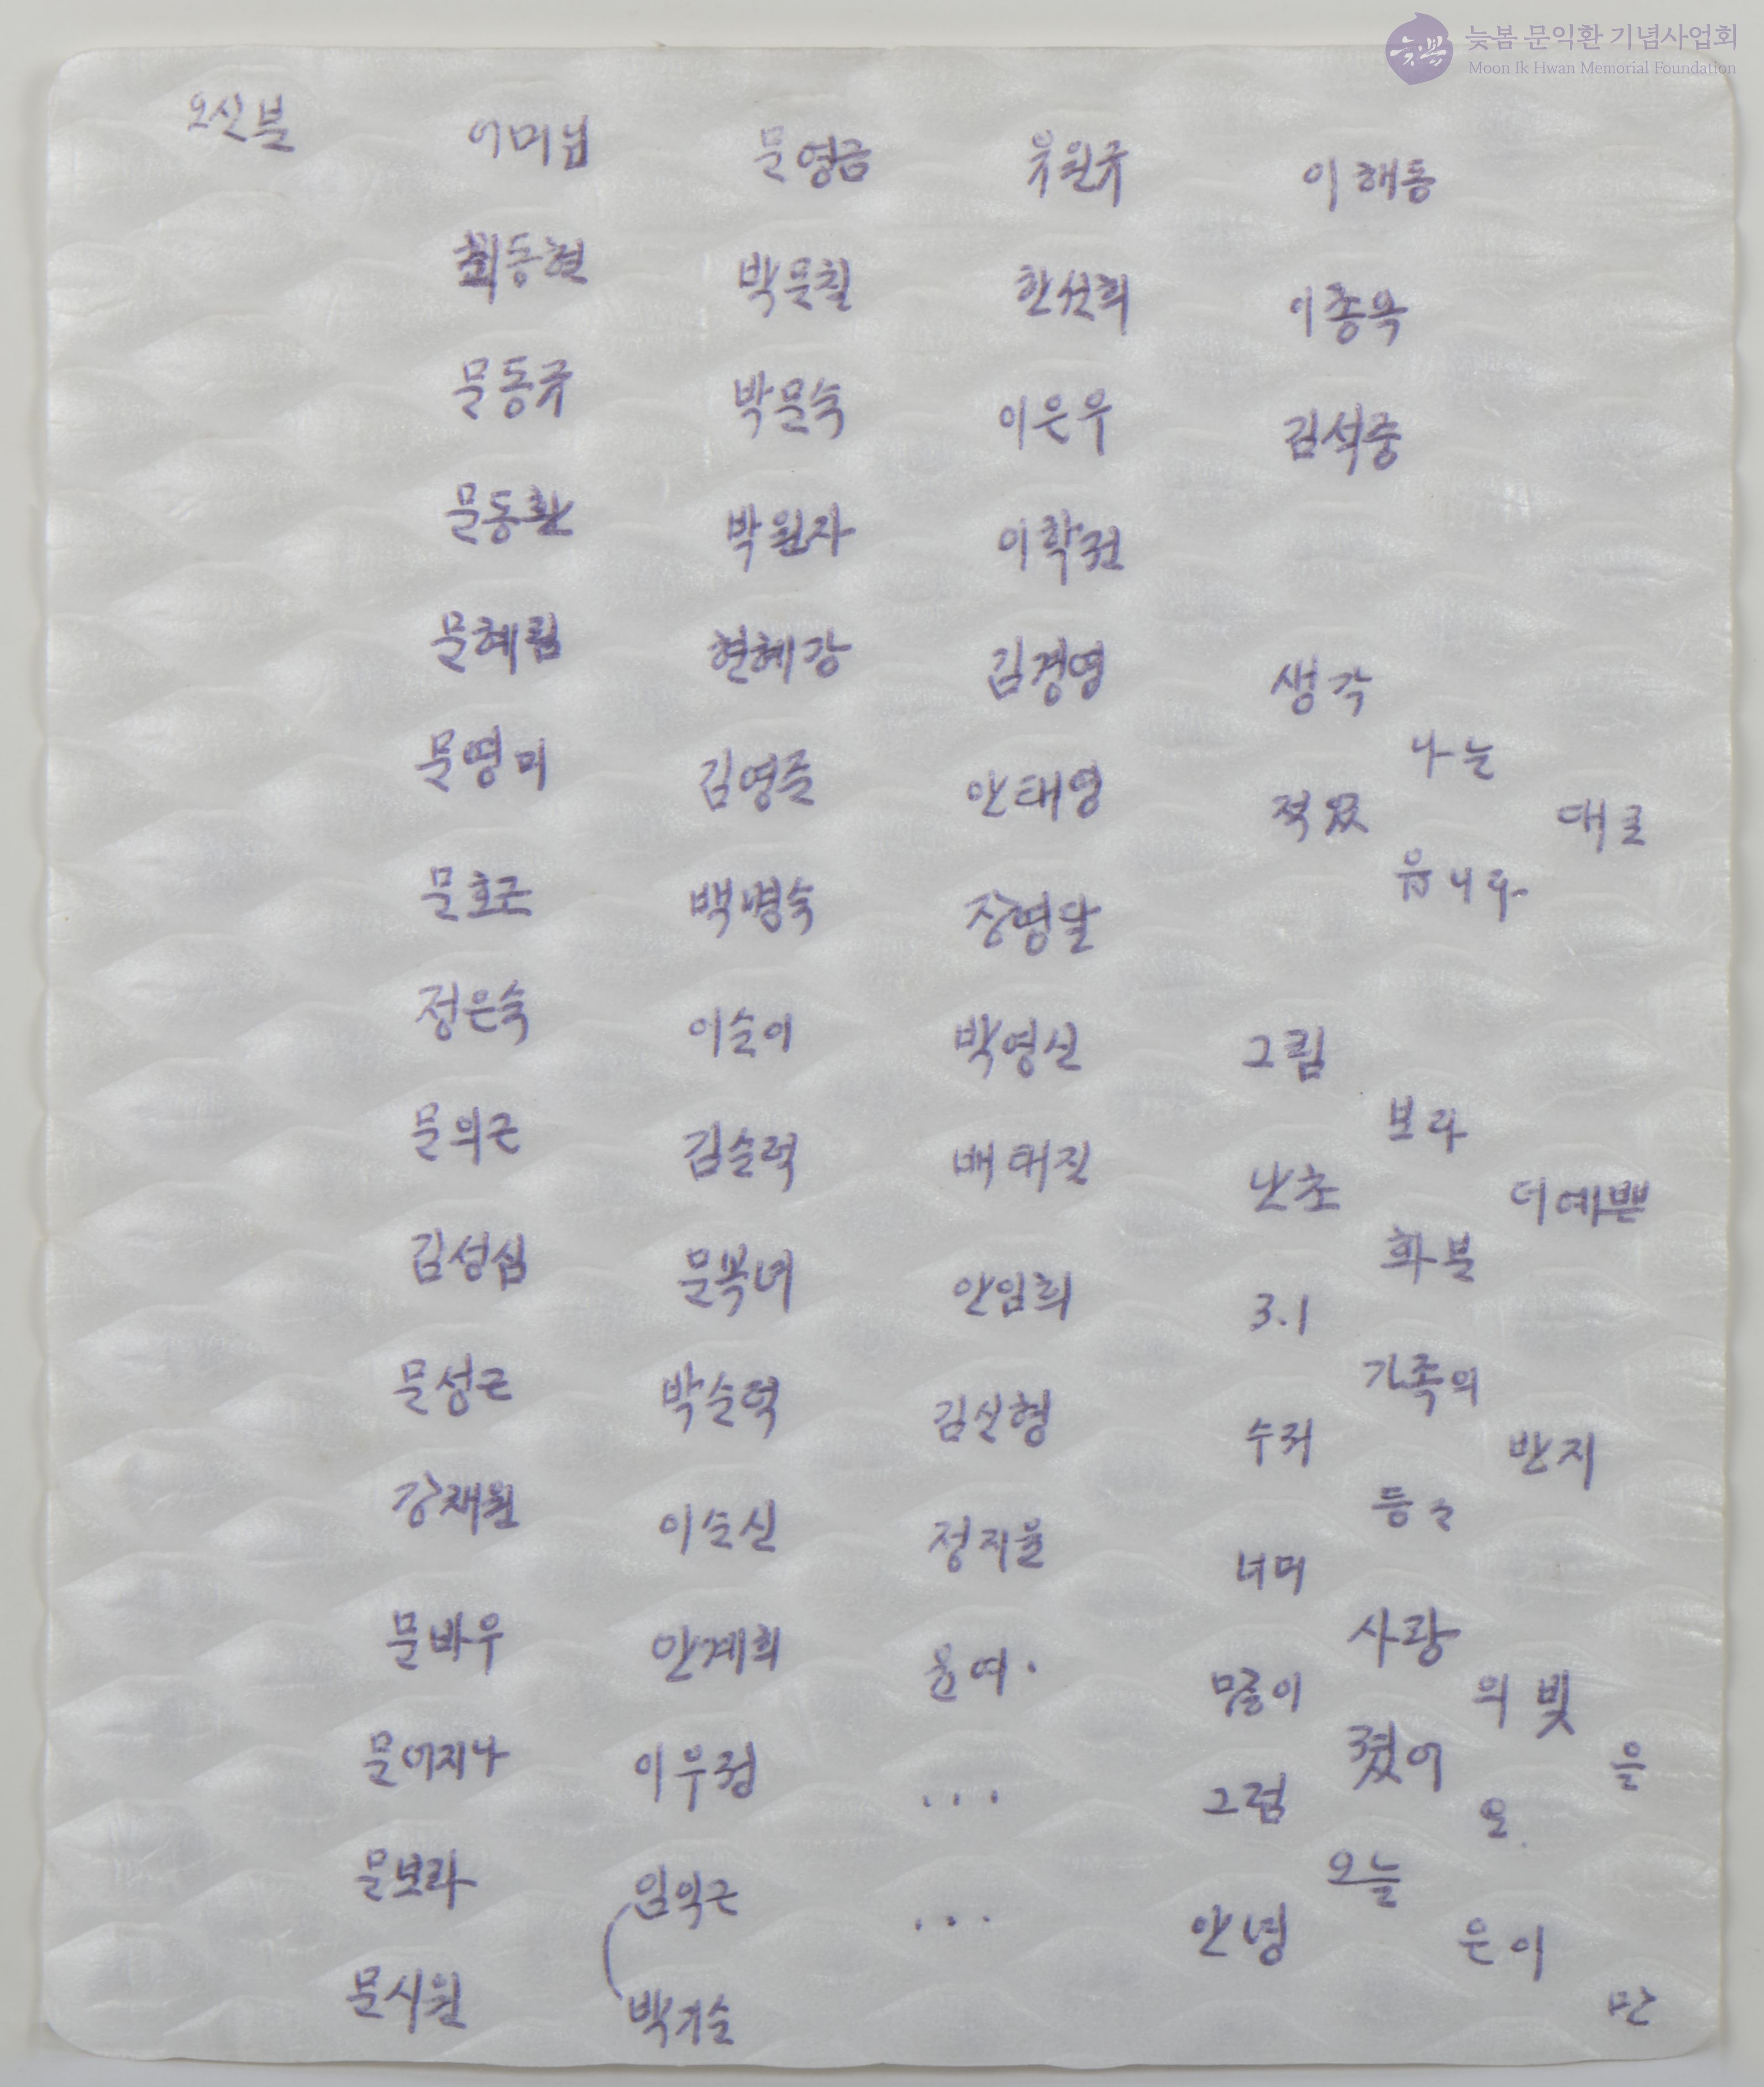 늦봄 문익환 기념사업회
Moon Ik Hwan Memorial Foundation
오신분
어머님
최동현
문동규
문동환
문혜림
문영미
문호근
정은숙
문의근
김성심
문성근
강재원
문바우
문어지나
문보라
문시원
문영금
박문칠
박문숙
박원자
현혜강
김영준
백명숙
이순이
김순덕
문복녀
박순덕
이순신
안계희
이우정
임익근
박기순
유원규
한선희
이은우
이학전
김경영
안태영
장영달
박영신
배태진
안임희
김신형
정지율
윤여.
...
...
이해동
이종옥
김석중
생각나는대로
적었읍니다
그림보라 더예쁜
난초화분
3.1가족의 반지
수저등々
너머사랑의 빛을
몇이졌어요.
그럼오늘은이만
안녕